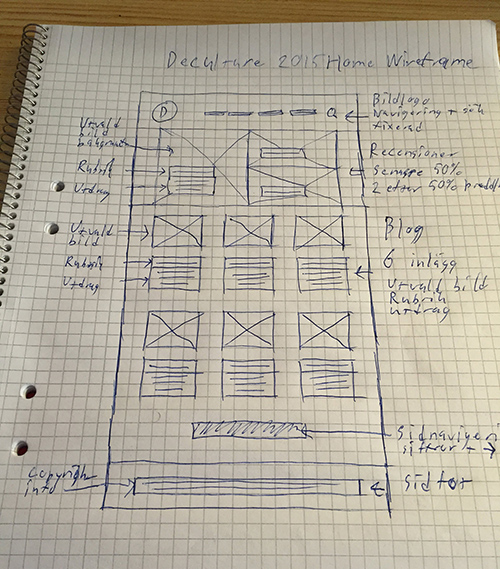 Deculture 2015 Home Wireframe
D
Bildlogo
Navigering + sök
fixerad
Utvald
bild
bakgrund
Rubrik
Utdrag
Recensioner
Senaste 50%
2 efter 50% bredd
Utvald
bild
Rubrik
Utdrag
Blog
6 inlägg
Utvald bild
Rubrik
Utdrag
Sidnavigeri
siffror + →
copyright
info
Sidfot